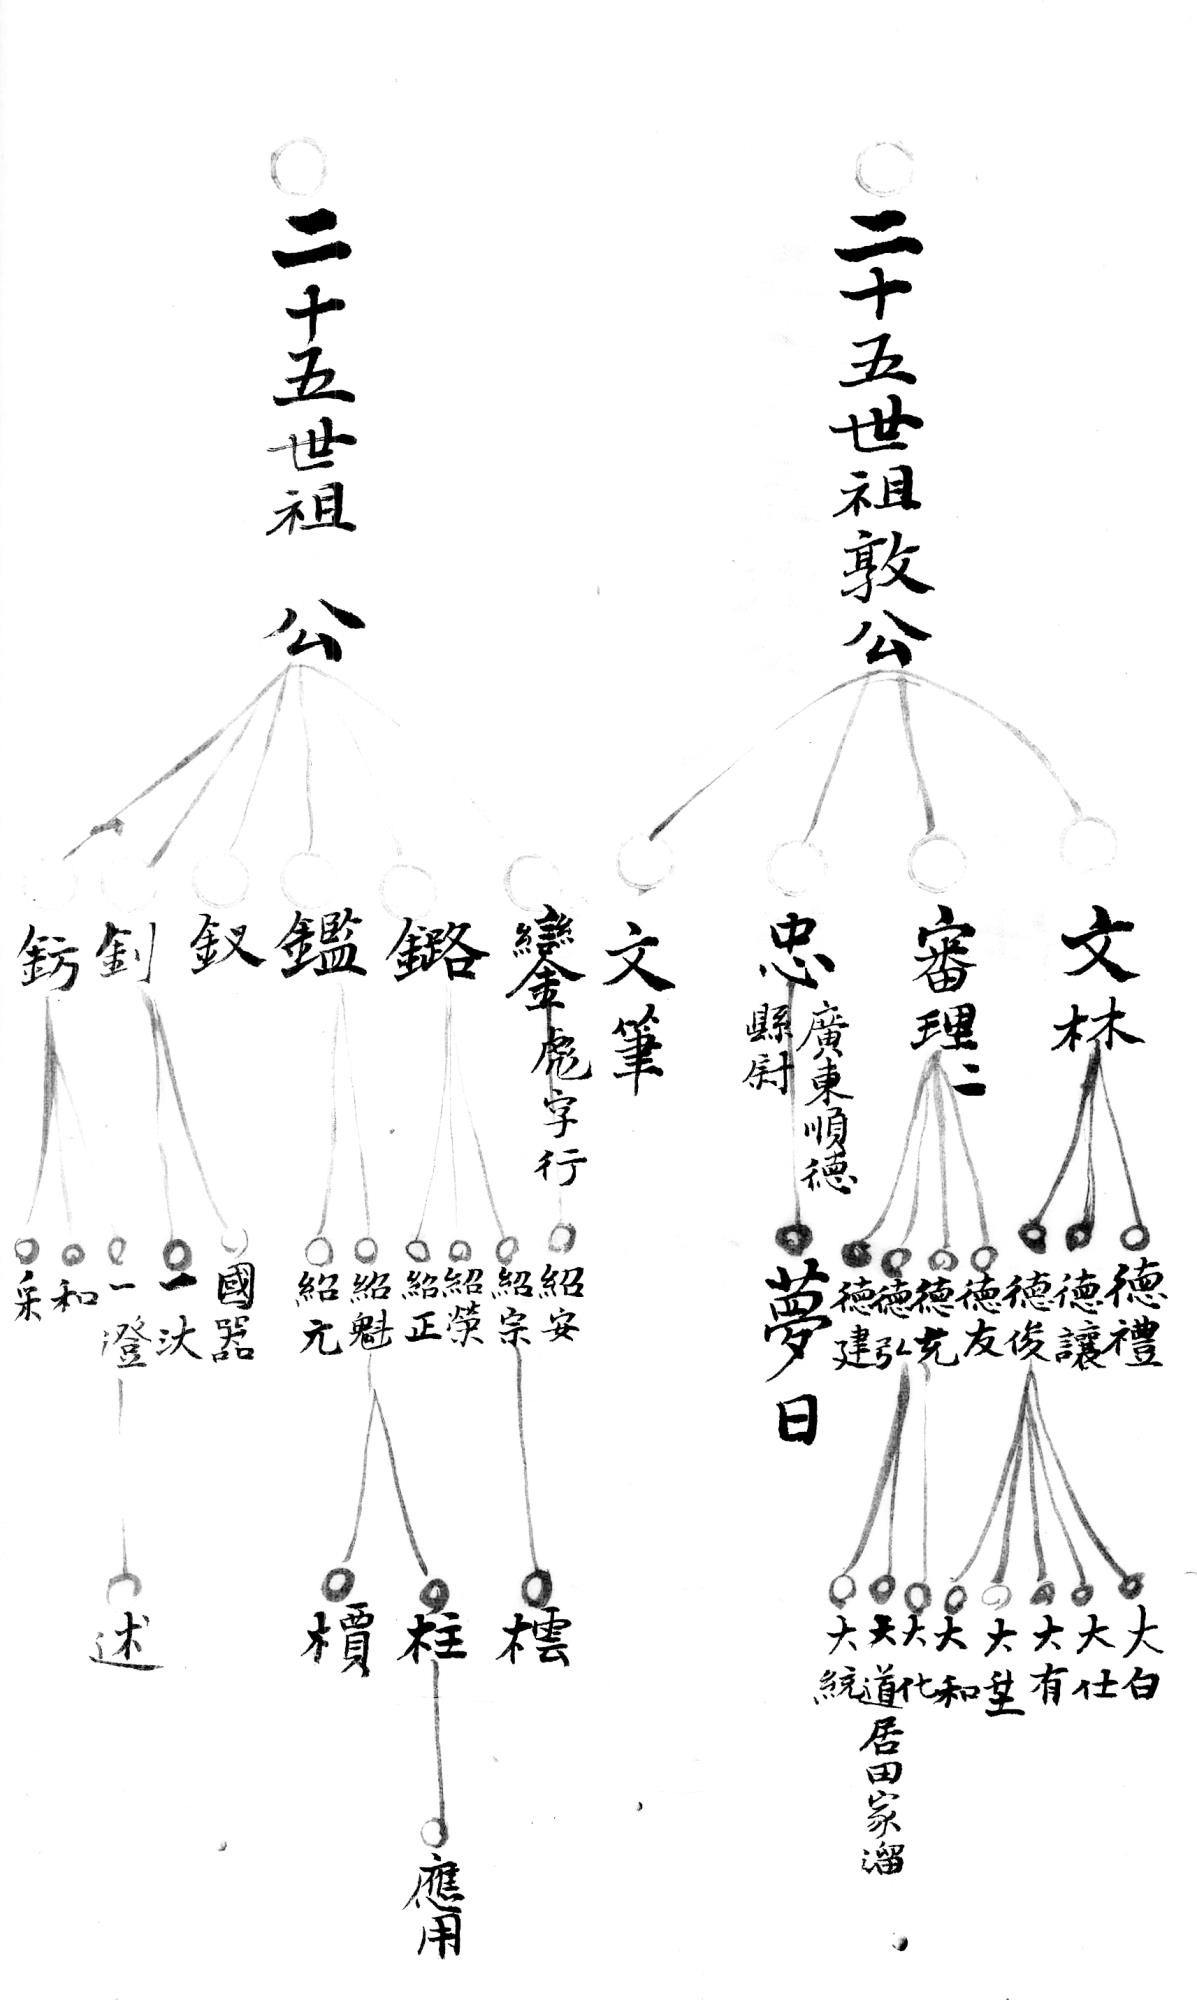 二十五世祖敦公
文林
審理二
忠
廣東順德
縣尉
文筆
德禮
德讓
德俊
德友
德充
德弘
德建
夢日
大白
大仕
大有
大
大和
大化
大道居田家溜
大統
二十五世祖 公
鑾彪字行
鏴
鑑
釵
釗
鈁
紹安
紹宗
紹榮
紹正
紹魁
紹元
國器
一汏
一澄
和
采
橒
柱
檟
述
應用